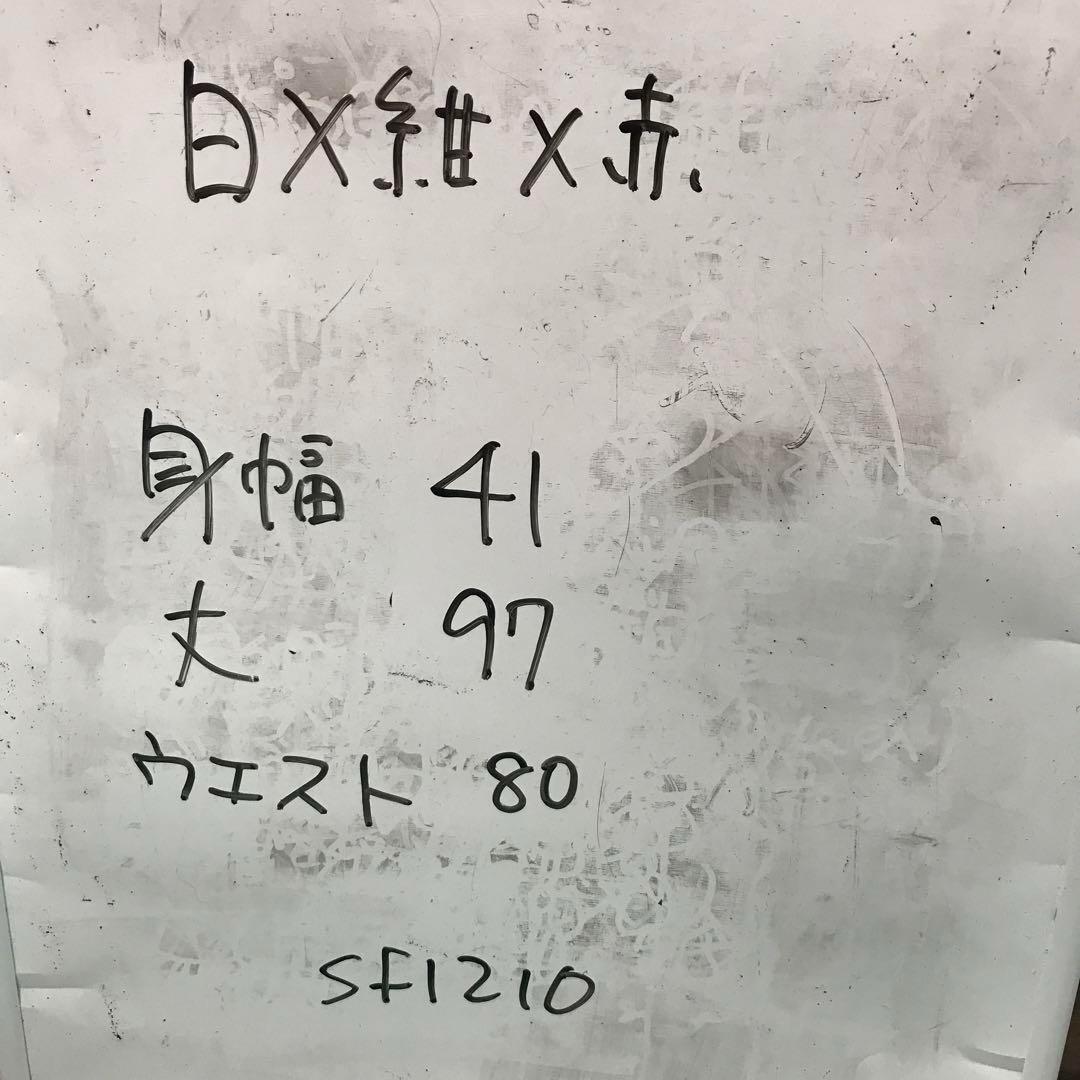 白×紺×赤
身幅 41
丈 97
ウエスト 80
SF1210